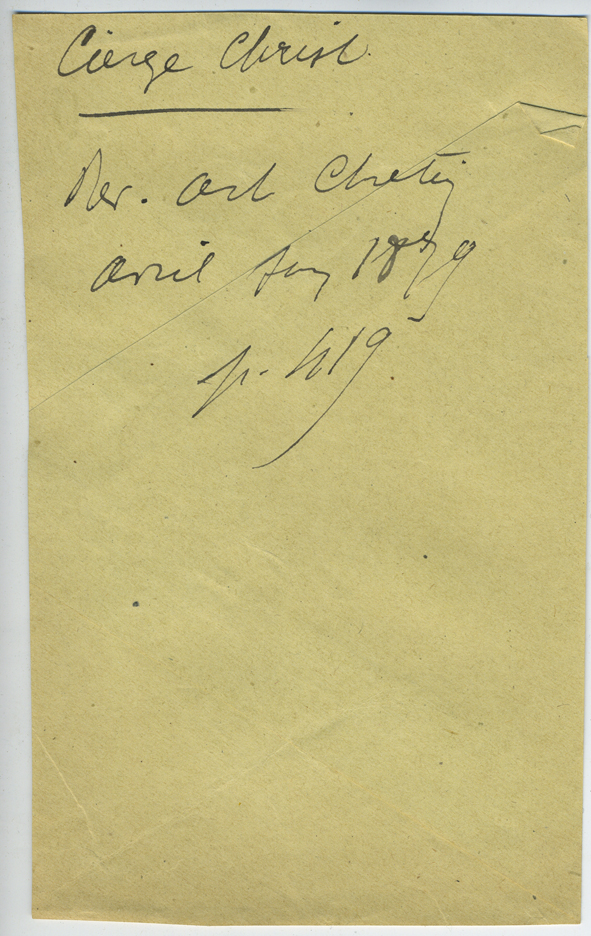 Cierge Christ.
Rev. art Chrétien
avril 1879
p. 419